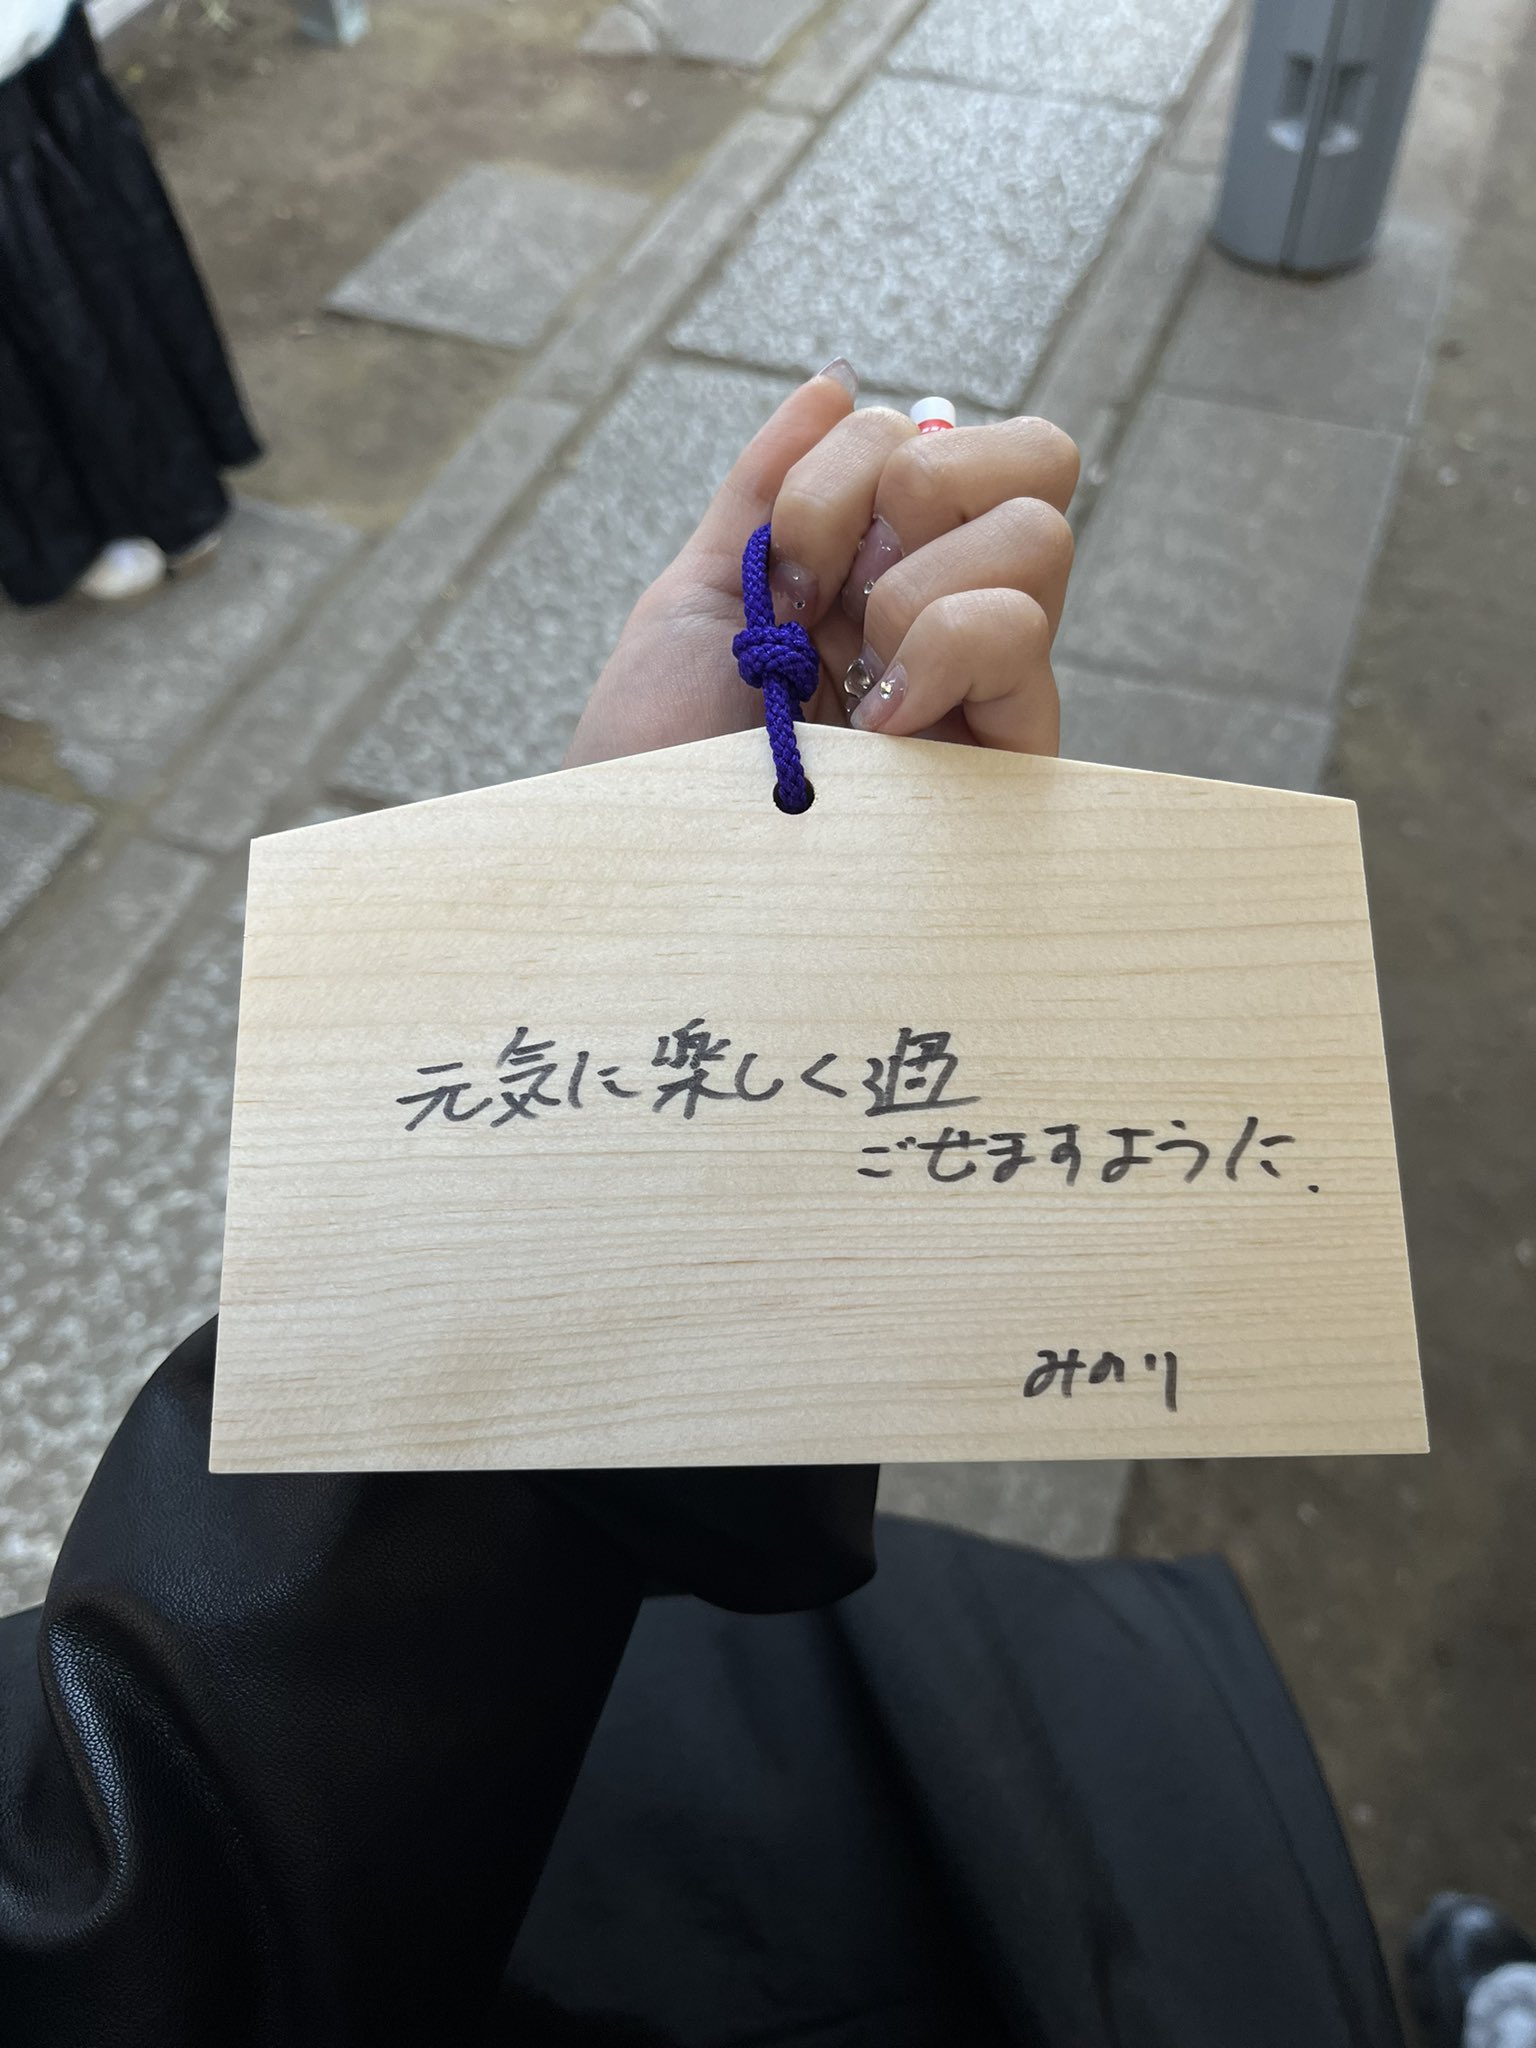 元気に楽しく過
ごせますように.
みのり